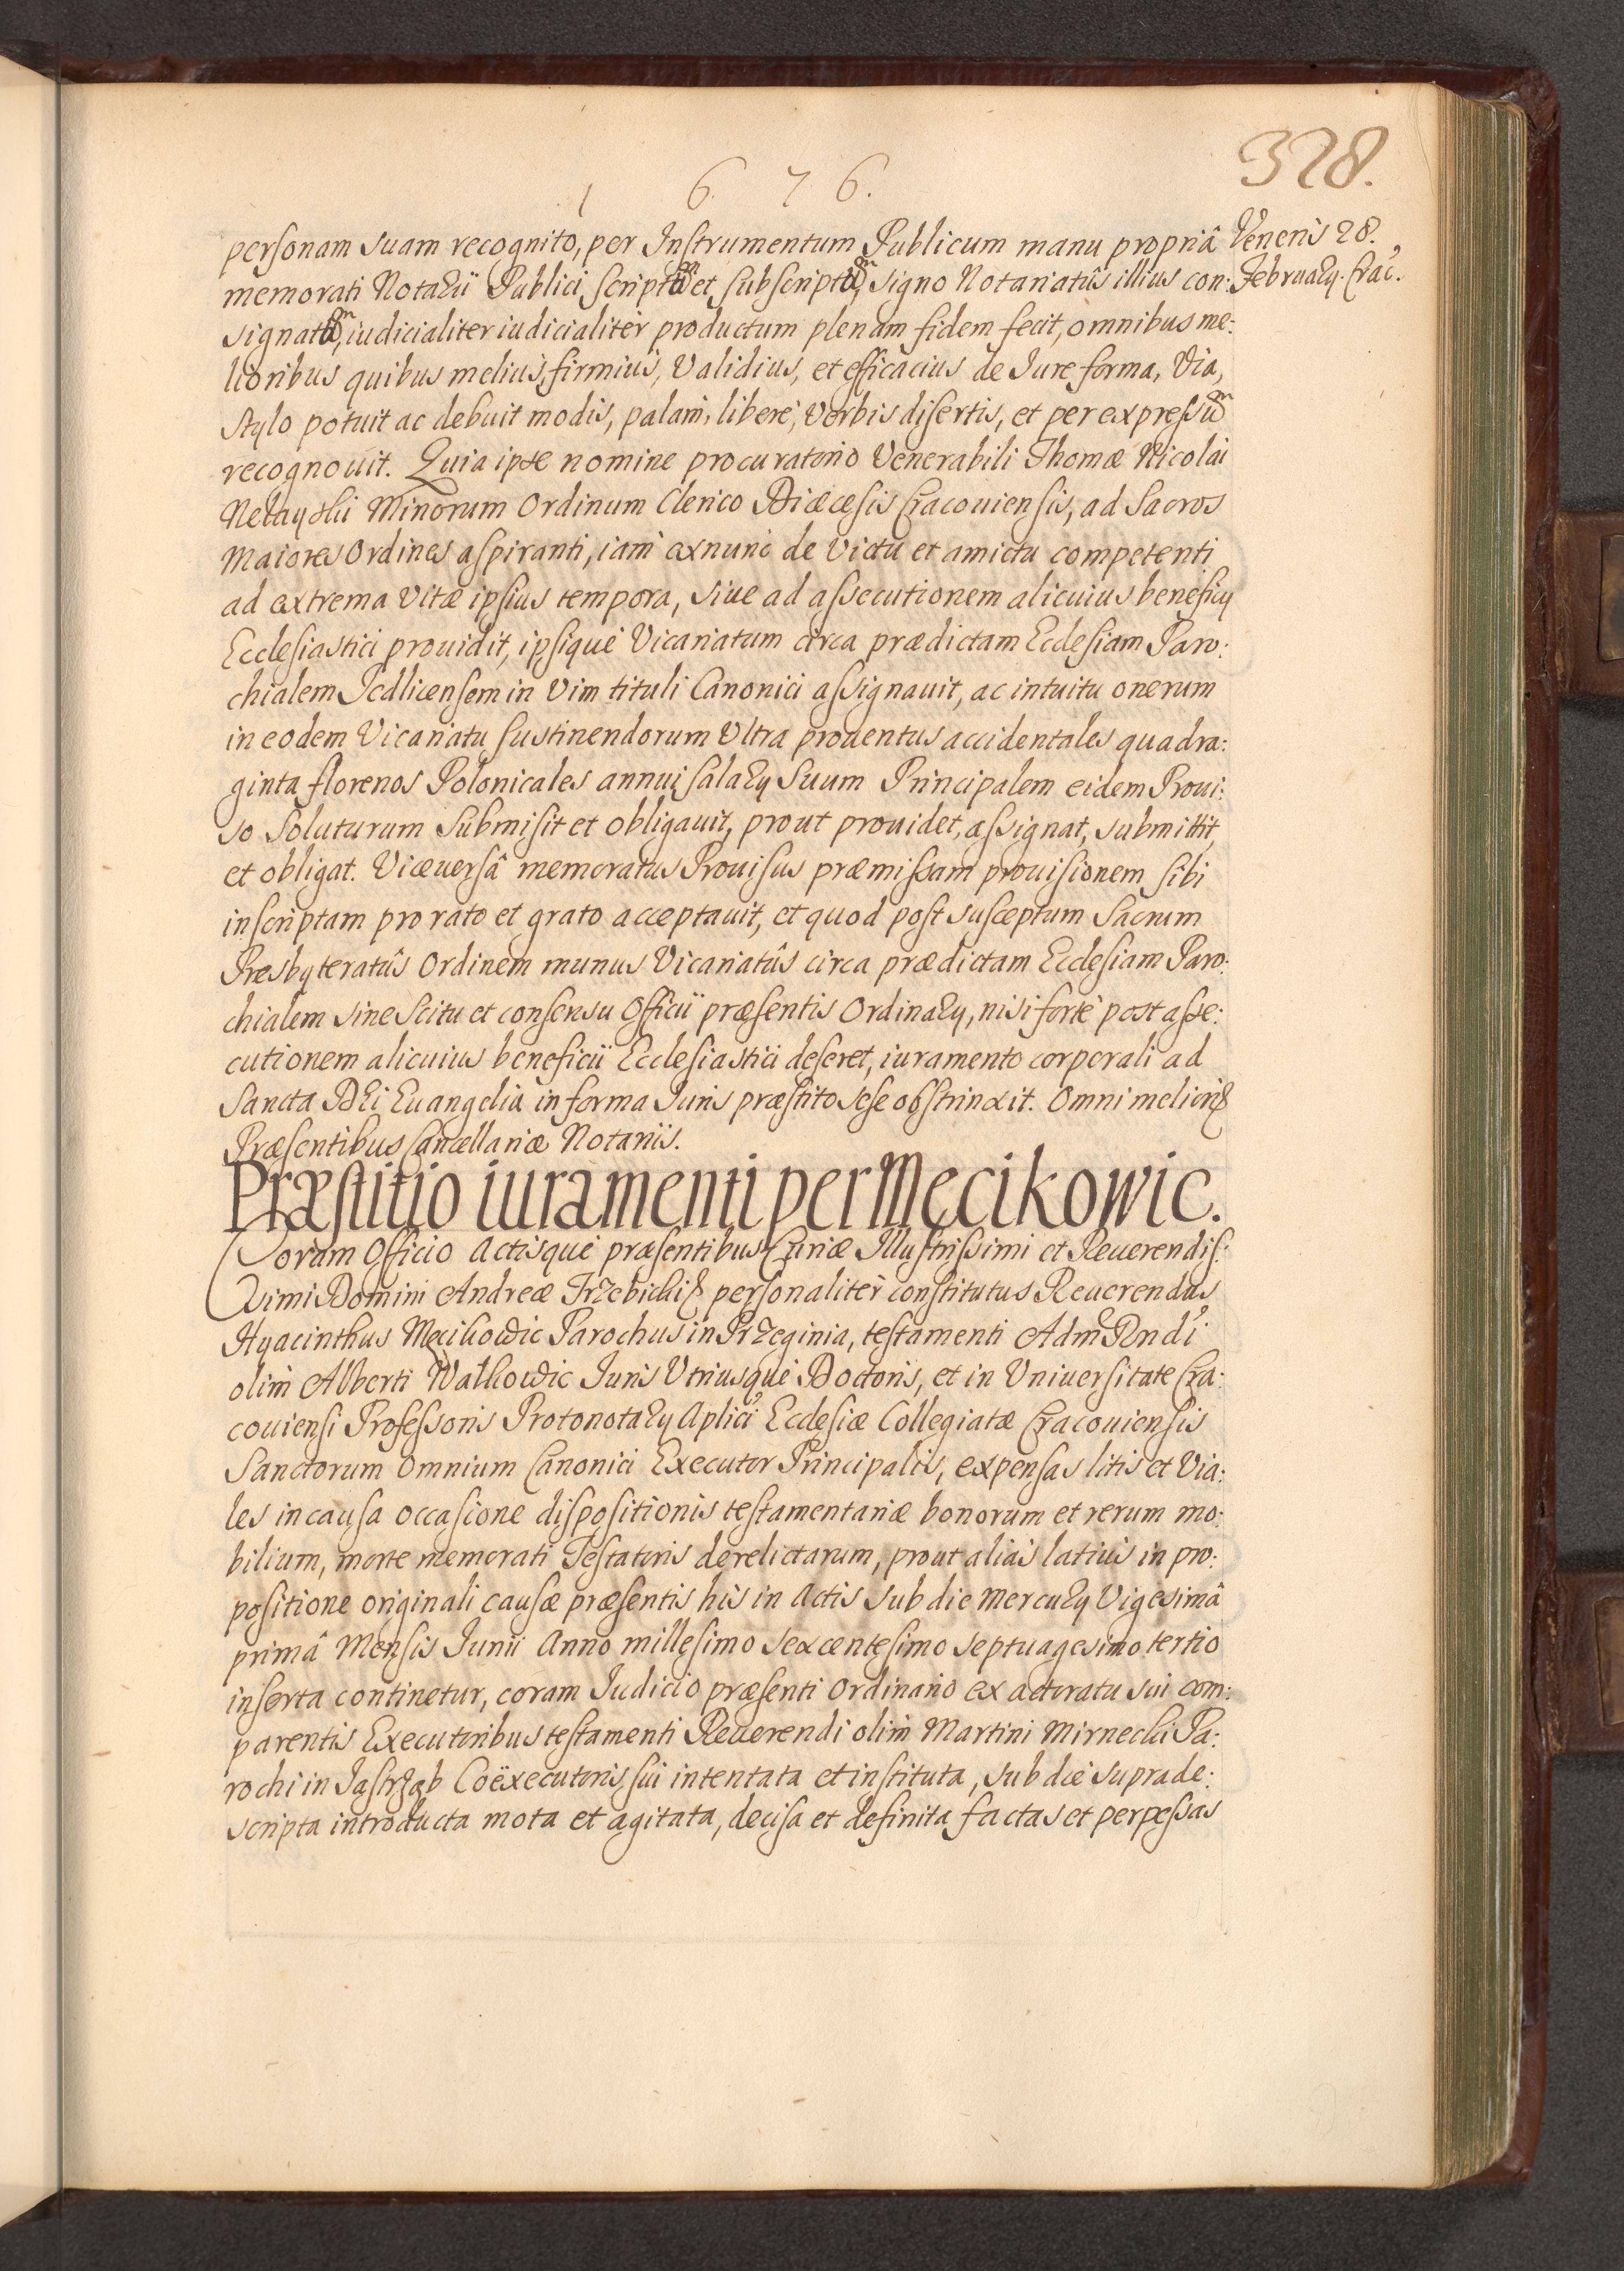 328.
1 6 7 6.
personam suam recognito, per Instrumentum Publicum manu propriâ
Veneris 28.
memorati Notarii Publici scriptum et subscriptum, signo Notariatûs illius con:
February. Crac.
signatum, iudicialiter iudicialiter productum plenam fidem fecit, omnibus me:
lioribus quibus melius, firmius, Validius, et efficacius de Iure forma, Via,
stylo potuit ac debuit modis, palam, liberè, verbis disertis, et per expressum
recognouit. Quia ipse nomine procuratorio Venerabili Thomæ Nicolai
Minorum Ordinum Clerico Diæcesis Cracouiensis, ad Sacros
Maiores Ordines aspiranti, iam exnunc de Victu et amictu competenti
ad extrema Vitæ ipsius tempora, siue ad assecutionem alicuius beneficy
Ecclesiastici prouidit, ipsique Vicariatum circa prædictam Ecclesiam Paro:
chialem Jedlicensem in Vim tituli Canonici assignauit, ac intuitu onerum
in eodem Vicariatu sustinendorum Vltra prouentus accidentales quadra:
ginta florenos Polonicales annui salary Suum Principalem eidem Proui:
so soluturum submisit et obligauit, prout prouidet, assignat, submittit,
et obligat. Viceuersâ memoratus Prouisus præmissam prouisionem sibi
inscriptam pro rato et grato acceptauit, et quod post susceptum Sacrum
Presbyteratûs Ordinem munus Vicariatûs circa prædictam Ecclesiam Paro:
chialem sine scitu et consensu Officii præsentis Ordinary, nisi fortè post asse:
cutionem alicuius beneficii Ecclesiastici deseret, iuramento corporali ad
Sancta DEi Euangelia in forma Iuris præstito sese obstrinxit. Omni meliori &
Præsentibus Cancellariæ Notariis.
Præstitio iuramenti per Mecikowic.
Coram Officio Actisque præsentibus Curiæ Illustrissimi et Reuerendis:
simi Domini Andreæ Trzebicki & personaliter constitutus Reuerendus
Hyacinthus Mecikowic Parochus in Przeginia, testamenti Adm Rndi
olim Alberti Walkowic Iuris Vtriusque Doctoris, et in Uniuersitate Cra:
couiensi Professoris Protonotary Aplici Ecclesiæ Collegiatæ Cracouiensis
Sanctorum Omnium Canonici Executor Principalis, expensas litis et Via:
les in causa occasione dispositionis testamentariæ bonorum et rerum mo:
bilium, morte memorati Testatoris derelictarum, prout alias latius in pro:
positione originali causæ præsentis his in Actis sub die Mercury Vigesimâ
primâ Mensis Iunii Anno millesimo sexcentesimo septuagesimo tertio
inserta continetur, coram Iudicio præsenti Ordinario ex actoratu sui com:
parentis Executoribus testamenti Reuerendi olim Martini Mirnecki Pa:
rochi in Jastrząb Coëxecutoris sui intentata et instituta, sub die suprade:
scripta introducta mota et agitata, decisa et definita factas et perpessas